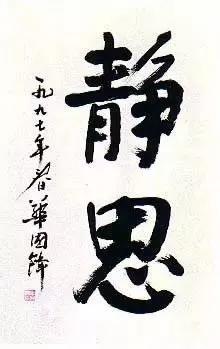 静思
一九九七年春 華國鋒